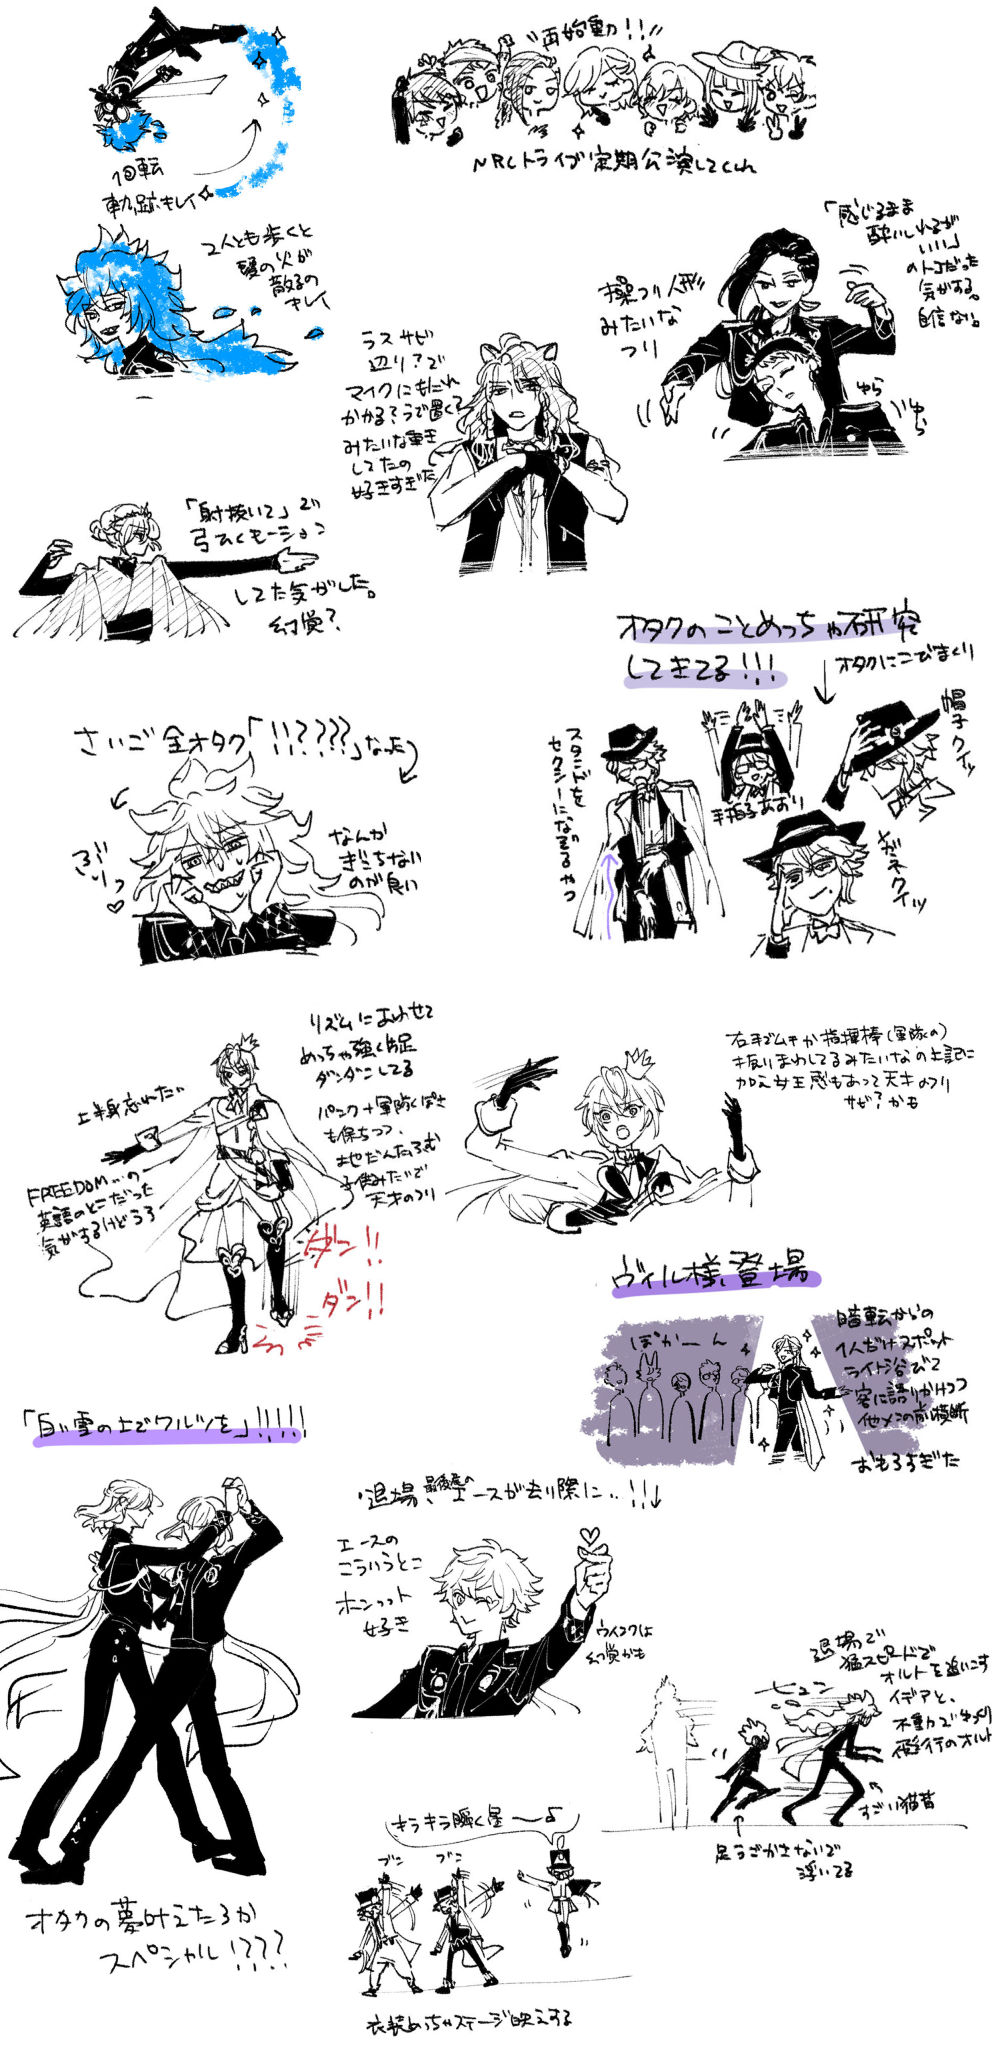 再始動!!
NRCトライブ定期公演してくれ
回転
軌跡キレイ
2人とも歩くと
頭の火が
散るの
キレイ
「感じるまま
酔いしれるが
いい」
のトコだった
気がする。
自信ない。
操り人形
みたいな
フリ
ゆら
ゆら
ラスサビ
辺り?で
マイクにもたれ
かかる?うで置くて
みたいな事を
してたの
好きすぎた
「射抜いて」で
弓ひくモーション
してた気がした。
幻覚?
オタクのことめっちゃ研究
してきてる!!!
オタクにこびまくり
帽子クイッ
手拍子あおり
メガネクイッ
スタンドを
セクシーになでるやつ
さいご全オタク「!!????」なった
ぶりっ♡
なんか
ぎこちない
のが良い
リズムにあわせて
めっちゃ強く足
ダンダンしてる
上半身忘れた
パンク+軍隊ぽさ
も保ちつつ、
地だんだふむ
子供みたいで
天才のフリ
FREEDOM…の
英語のとこだった
気がするけどうろ
ダン!!
ダン!!
右手でムチか指揮棒(軍隊の)
振りまわしてるみたいなの上記に
加え女王感もあって天才のフリ
サビ?かも
ヴィル様、登場
ぽかーん
暗転からの
1人だけスポット
ライト浴びて
客に語りかけつつ
他メンの前横断
おもろすぎた
「白い雪の上でワルツを」!!!!!
オタクの夢叶えたろか
スペシャル!????
退場、最後尾の
エースが去り際に..!!
エースの
こういうとこ
ホンット
好き
ウインクは
幻覚かも
退場で
猛スピードで
オルトを追いこす
イデアと、
不動でゆっくり
飛行のオルト
ヒュン
すごい猫背
足うごかさないで
浮いてる
キラキラ瞬く星〜♪
ブン
ブン
衣装めっちゃステージ映えする